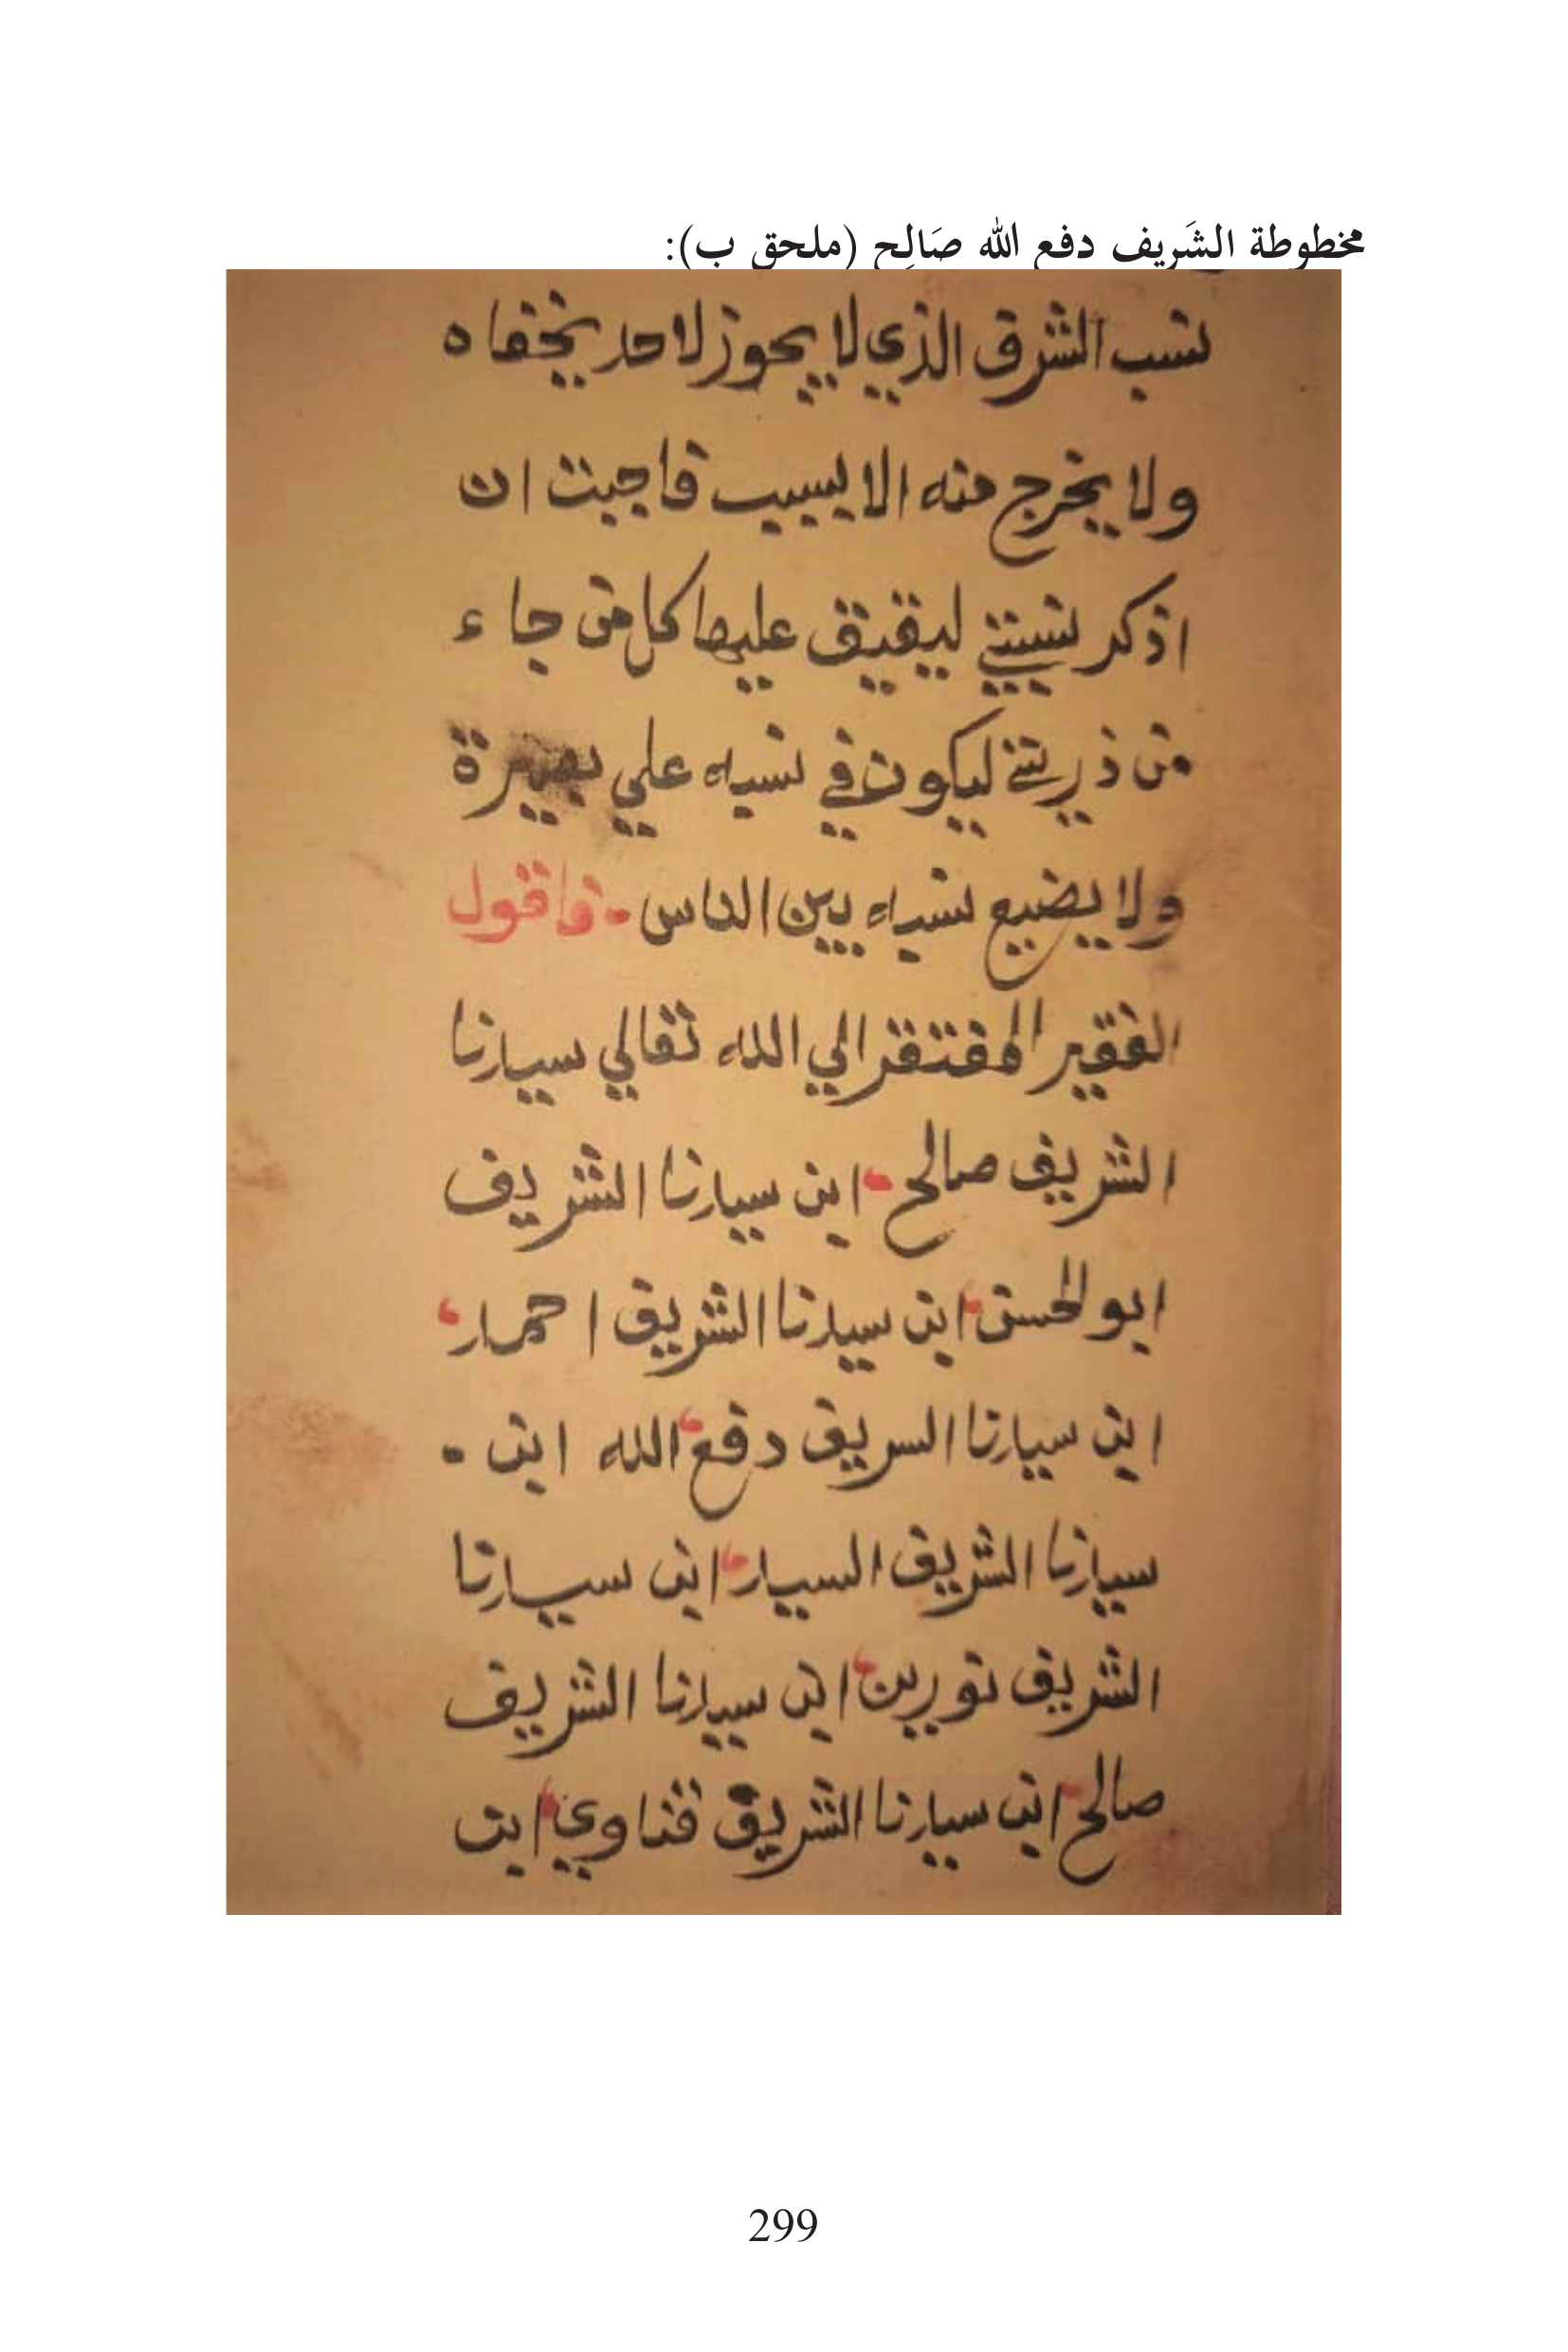 مخطوطة الشَريف دفع الله صَالِح (ملحق ب):
نسب الشرف الذي لا يجوز لاحد يخفاه
ولا يخرج منه الا بسبب فاجبت ان
اذكر نسبتي ليقيف عليها كل من جاء
من ذريتي ليكون في نسبه علي بصيرة
ولا يضيع نسبه بين الناس فاقول
الفقير المفتقر الي الله تعالي سيدنا
الشريف صالح ابن سيدنا الشريف
ابو الحسن ابن سيدنا الشريف احمد
ابن سيدنا السريف دفع الله ابن
سيدنا الشريف السيد ابن سيدنا
الشريف نورين ابن سيدنا الشريف
صالح ابن سيدنا الشريف قناوي ابن
299